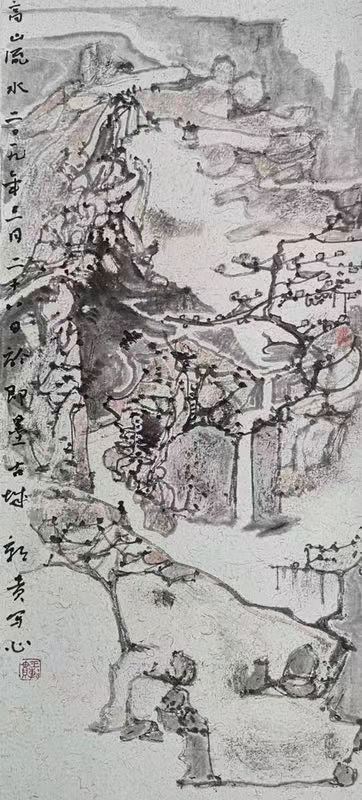 高山流水 二〇一九年二月二十六日 於即墨古城 郭贵军心